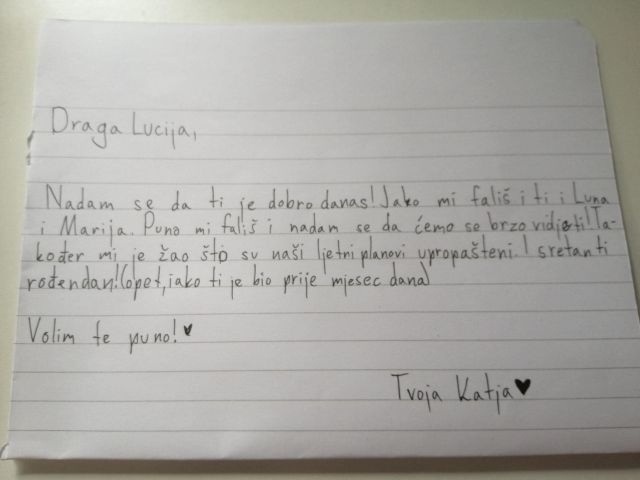 Draga Lucija,
Nadam se da ti je dobro danas! Jako mi fališ i ti i Luna
i Marija. Puno mi fališ i nadam se da ćemo se brzo vidjeti! Ta-
kođer mi je žao što su naši ljetni planovi upropašteni. I sretan ti
rođendan! (opet, iako ti je bio prije mjesec dana)
Volim te puno! ♥
Tvoja Katja ♥